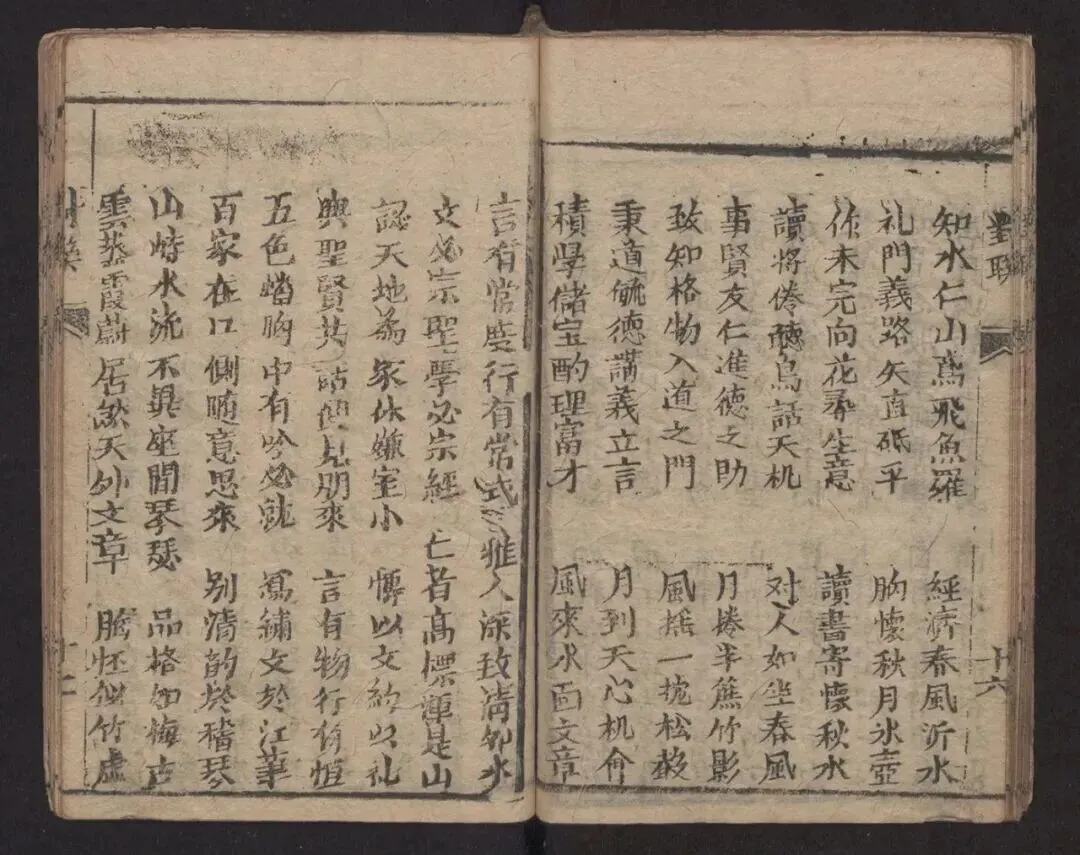 對联
十六
知水仁山鳶飛魚躍 經濟春風沂水
礼門義路矢直砥平 胸懐秋月氷壺
作未完向花奉生意 讀書寄懐秋水
讀將倦聽鳥話天机 对人如坐春風
事賢友仁進德之助 月捲半蕉竹影
致知格物入道之門 風摇一枕松
秉道毓德講義立言 月到天心机
積學儲宝酌理富才 風來水面文章
言有常度行有常式 雅人深致清如水
文必宗聖學必宗經 仁者高標運是山
認天地為家休嫌室小 博以文約以礼
與聖賢共話便見朋來 言有物行有恒
五色當胸中有吟必就 寫繍文於江筆
百家在口側随意思來 别清韵於稽琴
山峙水流不異座間琴瑟 品格如梅古
雲蒸霞蔚居然天外文章 胸怀似竹虚